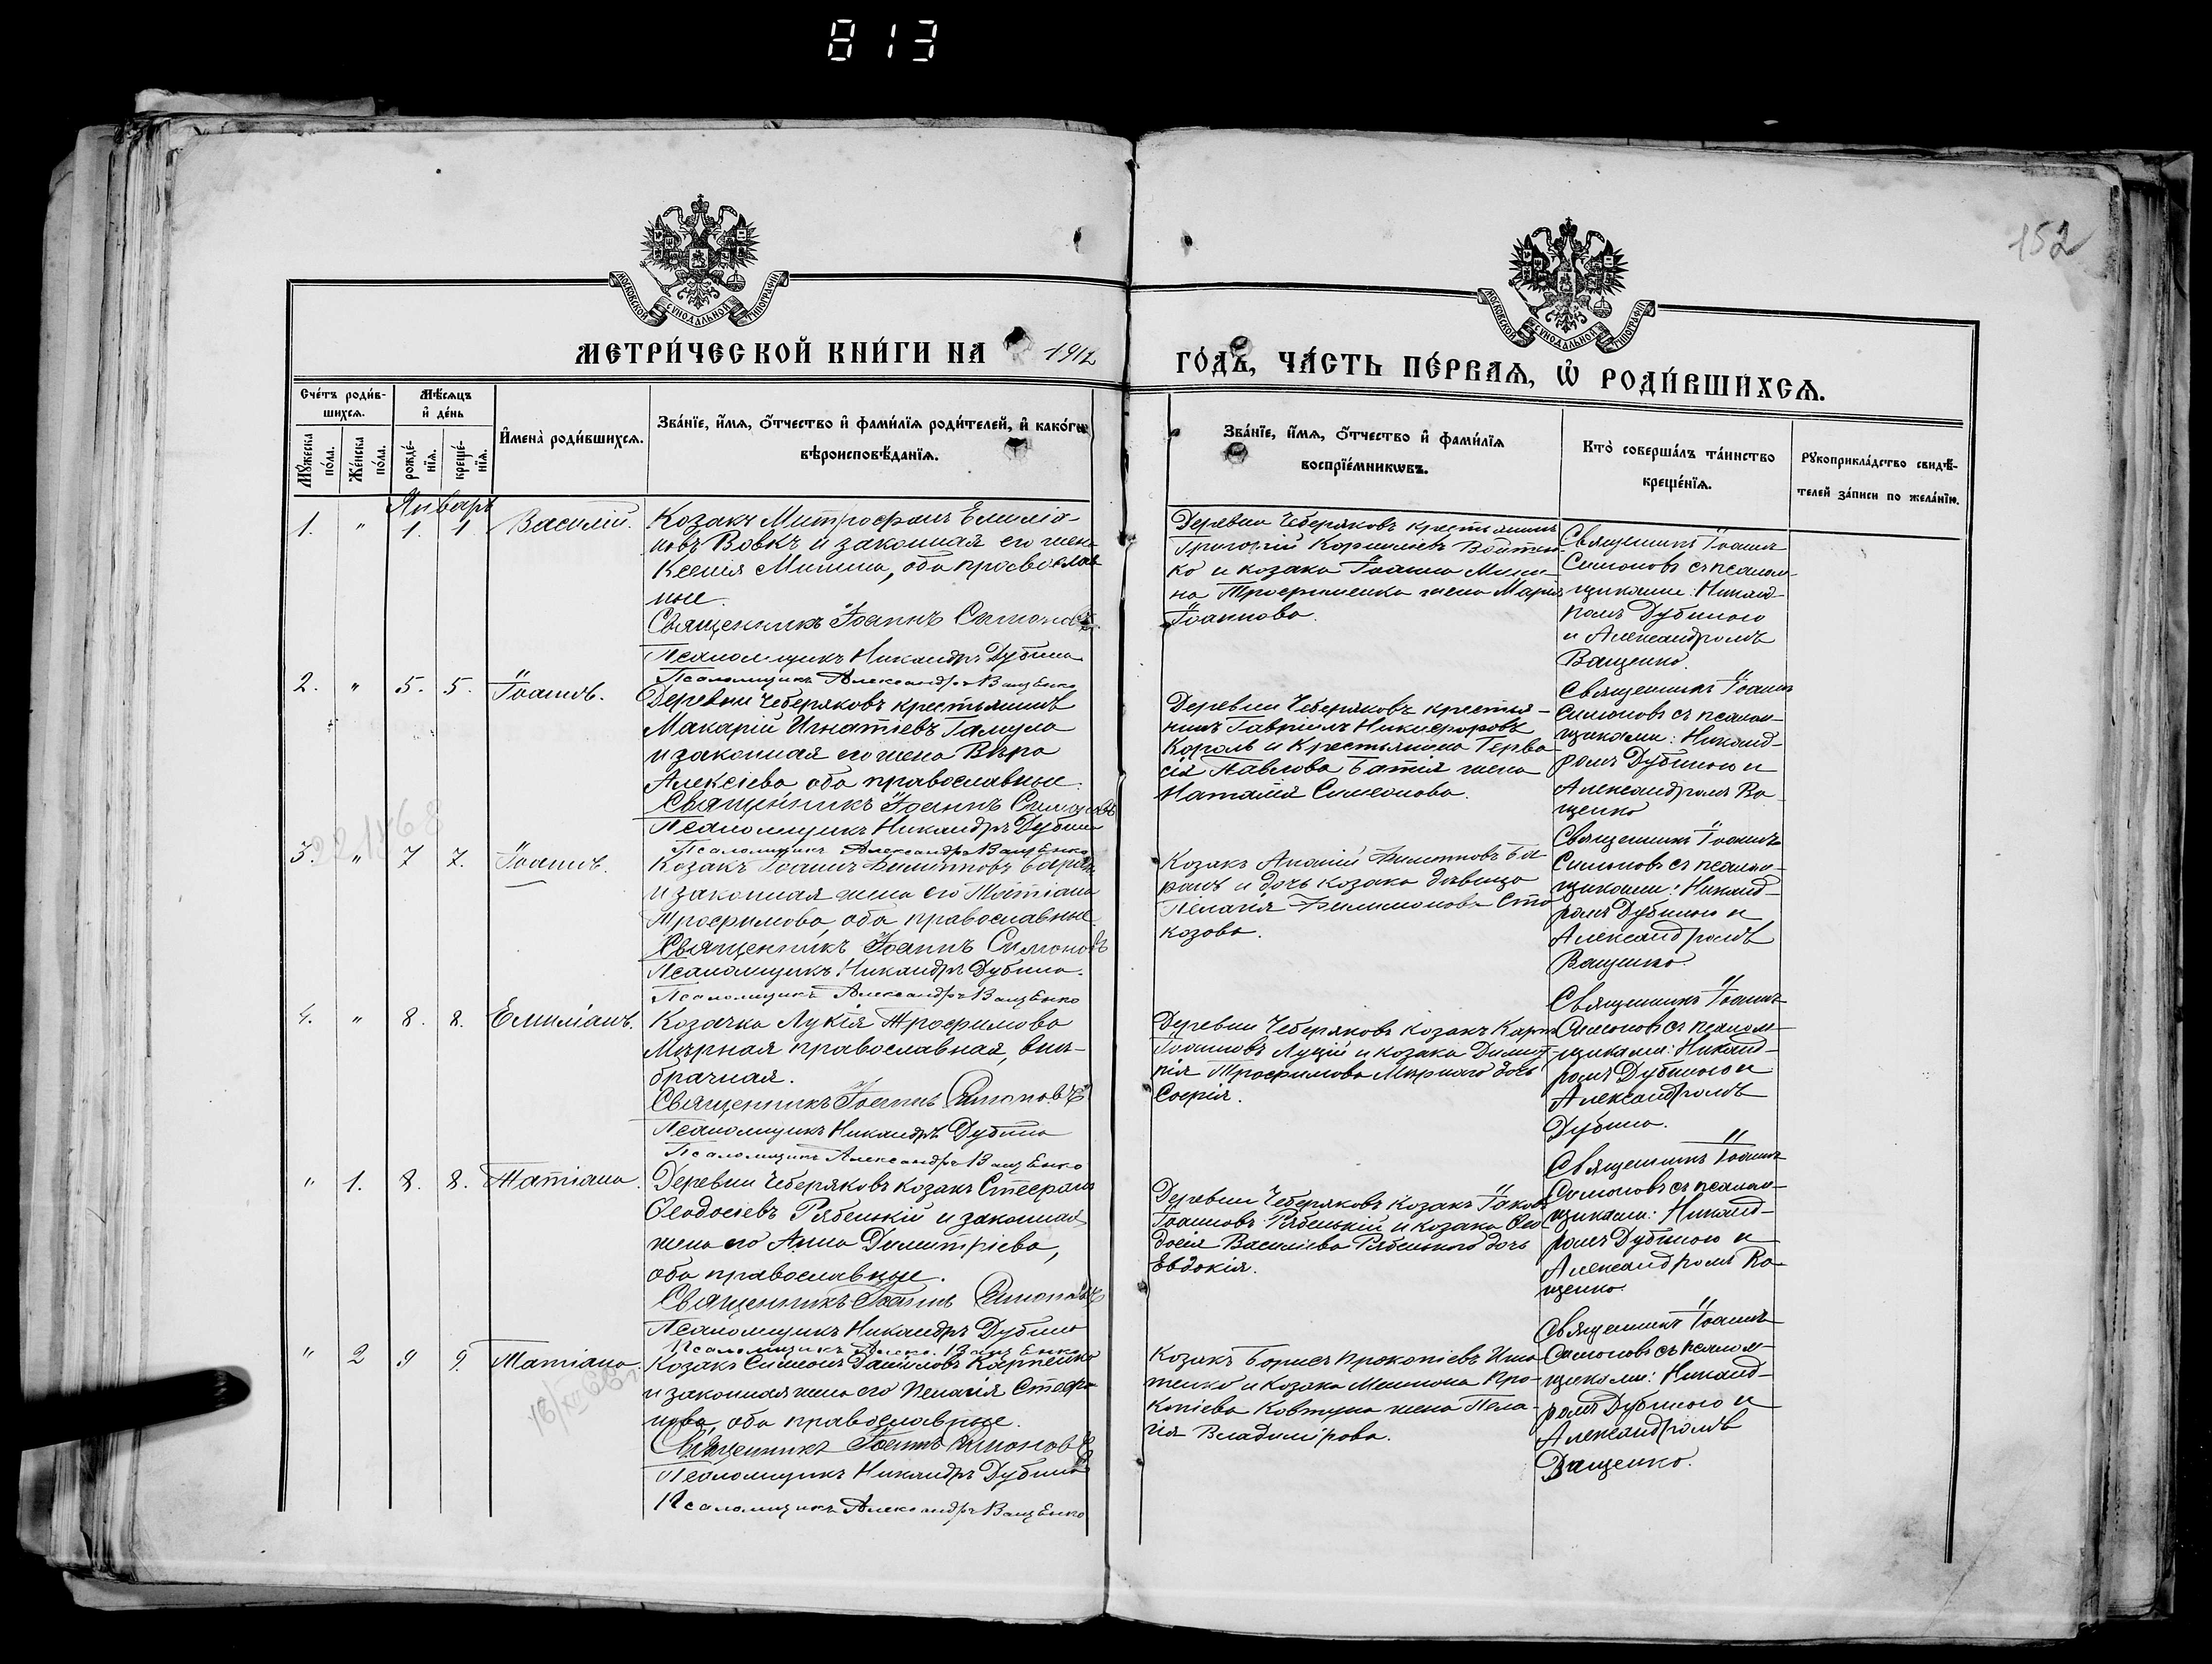 813
152
МОСКОВСКОЙ СУНОДАЛЬНОЙ ТИПОГРАФІИ
МОСКОВСКОЙ СУНОДАЛЬНОЙ ТИПОГРАФІИ
МЕТРИ́ЧЕСКОЙ КНИ́ГИ НА 1912
ГО́ДЪ, ЧА́СТЬ ПЕ́РВАѦ, Ѽ РОДИ́ВШИХСѦ.
Сче́тъ роди́в-
шихсѧ.
Мꙋ́жеска по́ла.
Же́нска по́ла.
Мѣ́сѧцъ
и҆ де́нь
рожде́-
нїѧ.
креще́-
нїѧ.
И҆мена̀ роди́вшихсѧ.
Зва́нїе, и҆́мѧ, о҆́тчество и҆ фами́лїѧ роди́телей, и҆ како́гѡ
вѣроисповѣ́данїѧ.
Зва́нїе, и҆́мѧ, о҆́тчество и҆ фами́лїѧ
воспрїе́мникѡвъ.
Кто̀ соверша́лъ та́инство
креще́нїѧ.
Рꙋкоприкла́дство свидѣ́-
телей за́писи по жела́нїю.
Январь
1. " 1. 1. Василій.
Козакъ Митрофанъ Емиліа-
новъ Вовкъ и законная его жена
Ксенія Минина, оба православ
ные.
Священникъ Іоаннъ Симоновъ
Псаломщикъ Никандръ Дубина
Псаломщикъ Александръ Ващенко
Деревни Чеберяковъ крестьянинъ
Григорій Корниліевъ Войтен-
ко и козака Іоанна Мини-
на Трофименка жена Марія
Іоаннова.
Священникъ Іоаннъ
Симоновъ съ псалом-
щиками: Никанд-
ромъ Дубиною
и Александромъ
Ващенко.
2. " 5. 5. Іоаннъ.
Деревни Чеберяковъ крестьянинъ
Макарій Игнатіевъ Гамула
и законная его жена Вѣра
Алексіева оба православные.
Священникъ Іоаннъ Симоновъ
Псаломщикъ Никандръ Дубина
Псаломщикъ Александръ Ващенко
Деревни Чеберяковъ крестья-
нинъ Гавріилъ Никифоровъ
Король и крестьянина Герва
сія Павлова Батія жена
Наталія Симеонова.
Священникъ Іоаннъ
Симоновъ съ псалом-
щиками: Никанд-
ромъ Дубиною и
Александромъ Ва-
щенко
3. " 7 7. Іоаннъ.
Козакъ Іоаннъ Филиповъ Баранъ
и законная жена его Татіана
Трофимова, оба православные
Священникъ Іоаннъ Симоновъ
Псаломщикъ Никандръ Дубина.
Псаломщикъ Александръ Ващенко
Козакъ Ананій Филиповъ Ба
ранъ и дочь козака дѣвица
Пелагія Филимонова Сто
козова.
Священникъ Іоаннъ
Симоновъ съ псалом-
щиками: Никанд-
ромъ Дубиною и
Александромъ
Ващенко.
4. " 8. 8. Емиліанъ.
Козачка Лукія Трофимова
Мирная православная, внѣ-
брачная.
Священникъ Іоаннъ Симоновъ
Псаломщикъ Никандръ Дубина
Псаломщикъ Александръ Ващенко
Деревни Чеберяковъ козакъ Карпъ
Іоанновъ Луцій и козака Димит
рія Трофимова Мирнаго дочь
Софія.
Священникъ Іоаннъ
Симоновъ съ псалом-
щиками: Никанд-
ромъ Дубиною и
Александромъ
Дубина.
" 1. 8. 8. Татіана.
Деревни Чеберяковъ козакъ Стефанъ
Ѳеодосіевъ Рябенькій и законная
жена его Анна Димитріева,
оба православные.
Священникъ Іоаннъ Симоновъ
Псаломщикъ Никандръ Дубина
Псаломщикъ Алекс. Ващенко
Деревни Чеберяковъ козакъ Іаковъ
Іоанновъ Рябенькій и козака Ѳео
досія Василіева Рябенького дочь
Евдокія.
Священникъ Іоаннъ
Симоновъ съ псалом-
щиками: Никанд-
ромъ Дубиною и
Александромъ Ва-
щенко.
" 2 9 9. Татіана.
Козакъ Симеонъ Даніиловъ Карпенко
и законная жена его Пелагія Стефа-
нова, оба православные.
Священникъ Іоаннъ Симоновъ
Псаломщикъ Никандръ Дубина
Псаломщикъ Александръ Ващенко
Козакъ Борисъ Прокопіевъ Игна
тенко и козака Мемнона Про-
копіева Ковтуна жена Пела-
гія Владимірова.
Священникъ Іоаннъ
Симоновъ съ псалом-
щиками: Никанд-
ромъ Дубиною и
Александромъ
Ващенко.